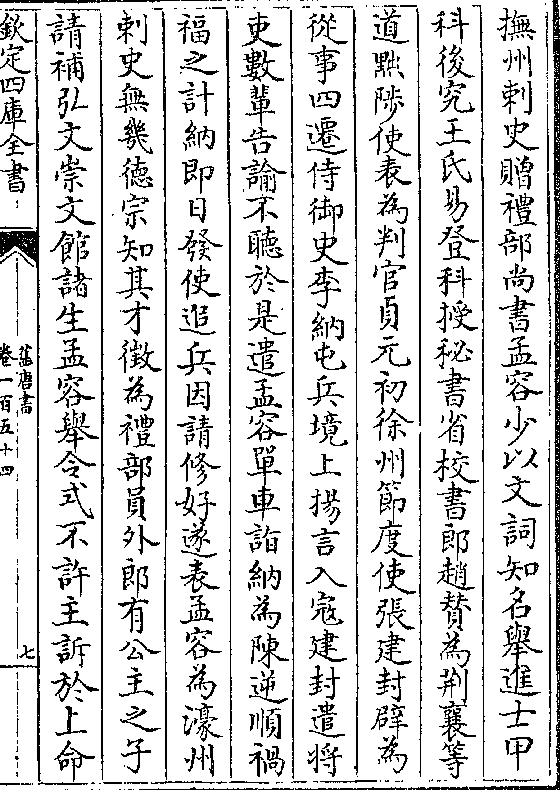 撫州刺史贈禮部尚書孟容少以文詞知名舉進士甲
科後究王氏易登科授秘書省校書郎趙贊為荆襄等
道黜陟使表為判官貞元初徐州節度使張建封辟為
從事四遷侍御史李納屯兵境上揚言入寇建封遣將
吏數輩告諭不聽於是遣孟容單車詣納為陳逆順禍
福之計納即日發使追兵因請修好遂表孟容為濠州
刺史無幾德宗知其才徵為禮部員外郎有公主之子
請補弘文崇文館諸生孟容舉令式不許主訴於上命
欽定四庫全書
舊唐書
卷一百五十四
七